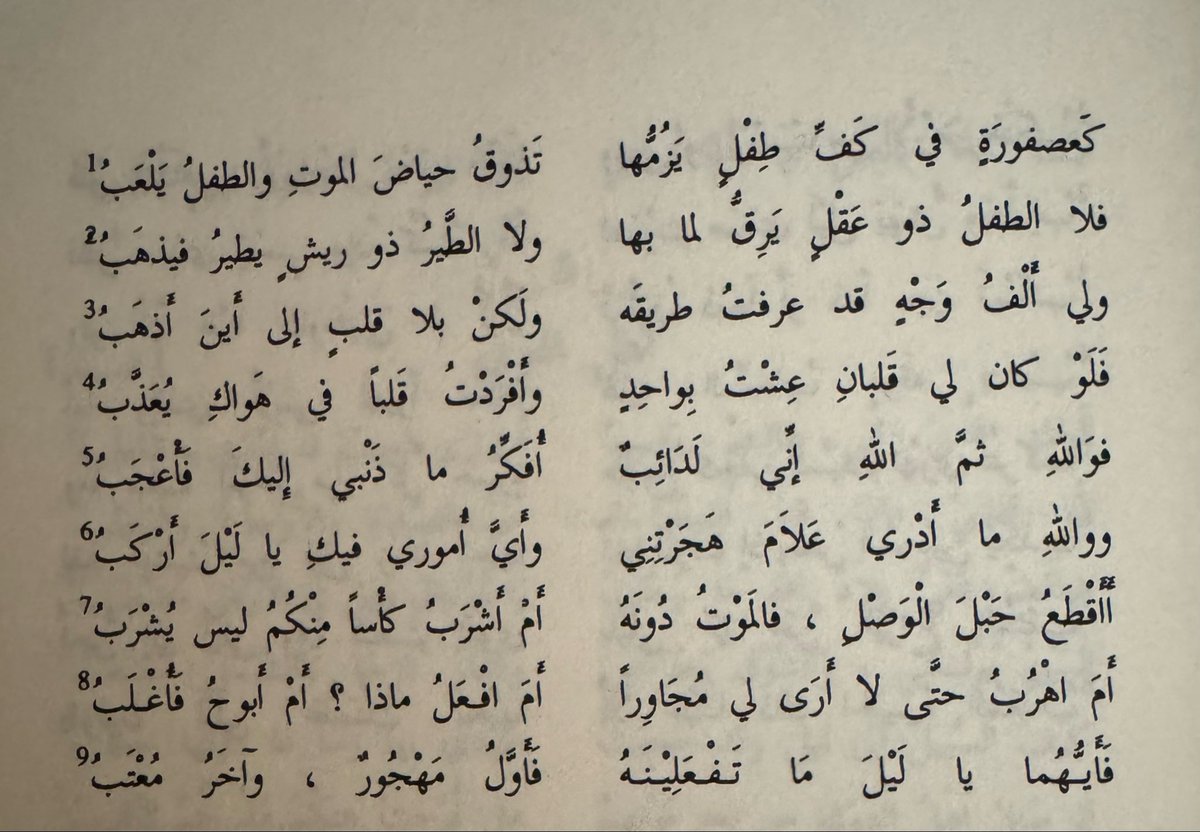 كَعصفورَةٍ في كَفِّ طِفْلٍ يَزُمُّها تَذوقُ حياضَ الموتِ والطفلُ يَلْعَبُ1
فلا الطفلُ ذو عَقْلٍ يَرِقُّ لما بها ولا الطَّيرُ ذو ريشٍ يطيرُ فيذهَبُ2
ولي أَلْفُ وَجْهٍ قد عرفتُ طريقَه ولَكنْ بلا قلبٍ إلى أَينَ أَذهَبُ3
فَلَوْ كان لي قَلبانِ عِشْتُ بِواحِدٍ وأَفْرَدْتُ قَلباً في هَواكِ يُعَذَّبُ4
فوَاللهِ ثمَّ اللهِ إنِّي لَدَائِبٌ أُفَكِّرُ ما ذَنْبي إِليكَ فَأَعْجَبُ5
وواللهِ ما أَدْري عَلاَمَ هَجَرْتِنِي وأَيَّ أُموري فيكِ يا لَيْلَ أَرْكَبُ6
أَأَقْطَعُ حَبْلَ الْوَصْلِ ، فالمَوْتُ دُونَهُ أَمْ أَشْرَبُ كأْساً مِنْكُمُ ليس يُشْرَبُ7
أَمَ اهْرُبُ حتَّى لا أَرَى لي مُجَاوِراً أَمَ افْعَلُ ماذا ؟ أَمْ أَبوحُ فَأُغْلَبُ8
فَأَيُّهُما يا لَيْلَ مَا تَفْعَلِيْنَهُ فَأَوَّلُ مَهْجُورٌ ، وآخَرُ مُعْتَبُ9